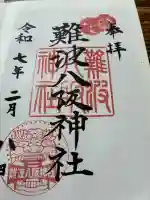 奉拝
難波八阪神社
難波
神社
令和七年二月八